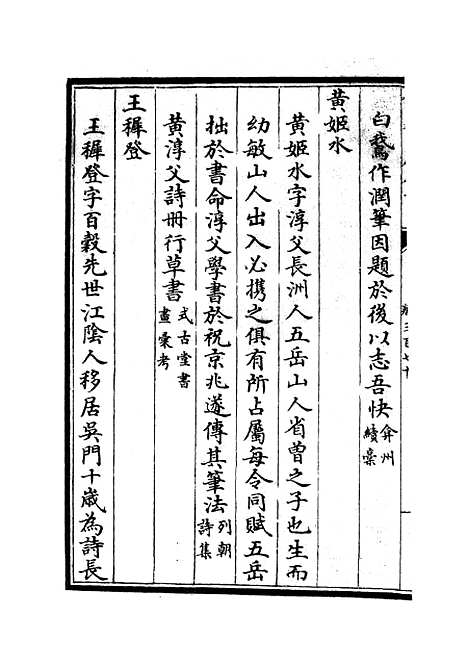 白鵞作潤筆因題於後以志吾快弇州續稾
黃姬水
黃姬水字淳父長洲人五岳山人省曾之子也生而
幼敏山人出入必携之俱有所占屬每令同賦五岳
拙於書命淳父學書於祝京兆遂傳其筆法列朝詩集
黃淳父詩册行草書式古堂書畫彙考
王穉登
王穉登字百穀先世江陰人移居吳門十歲為詩長